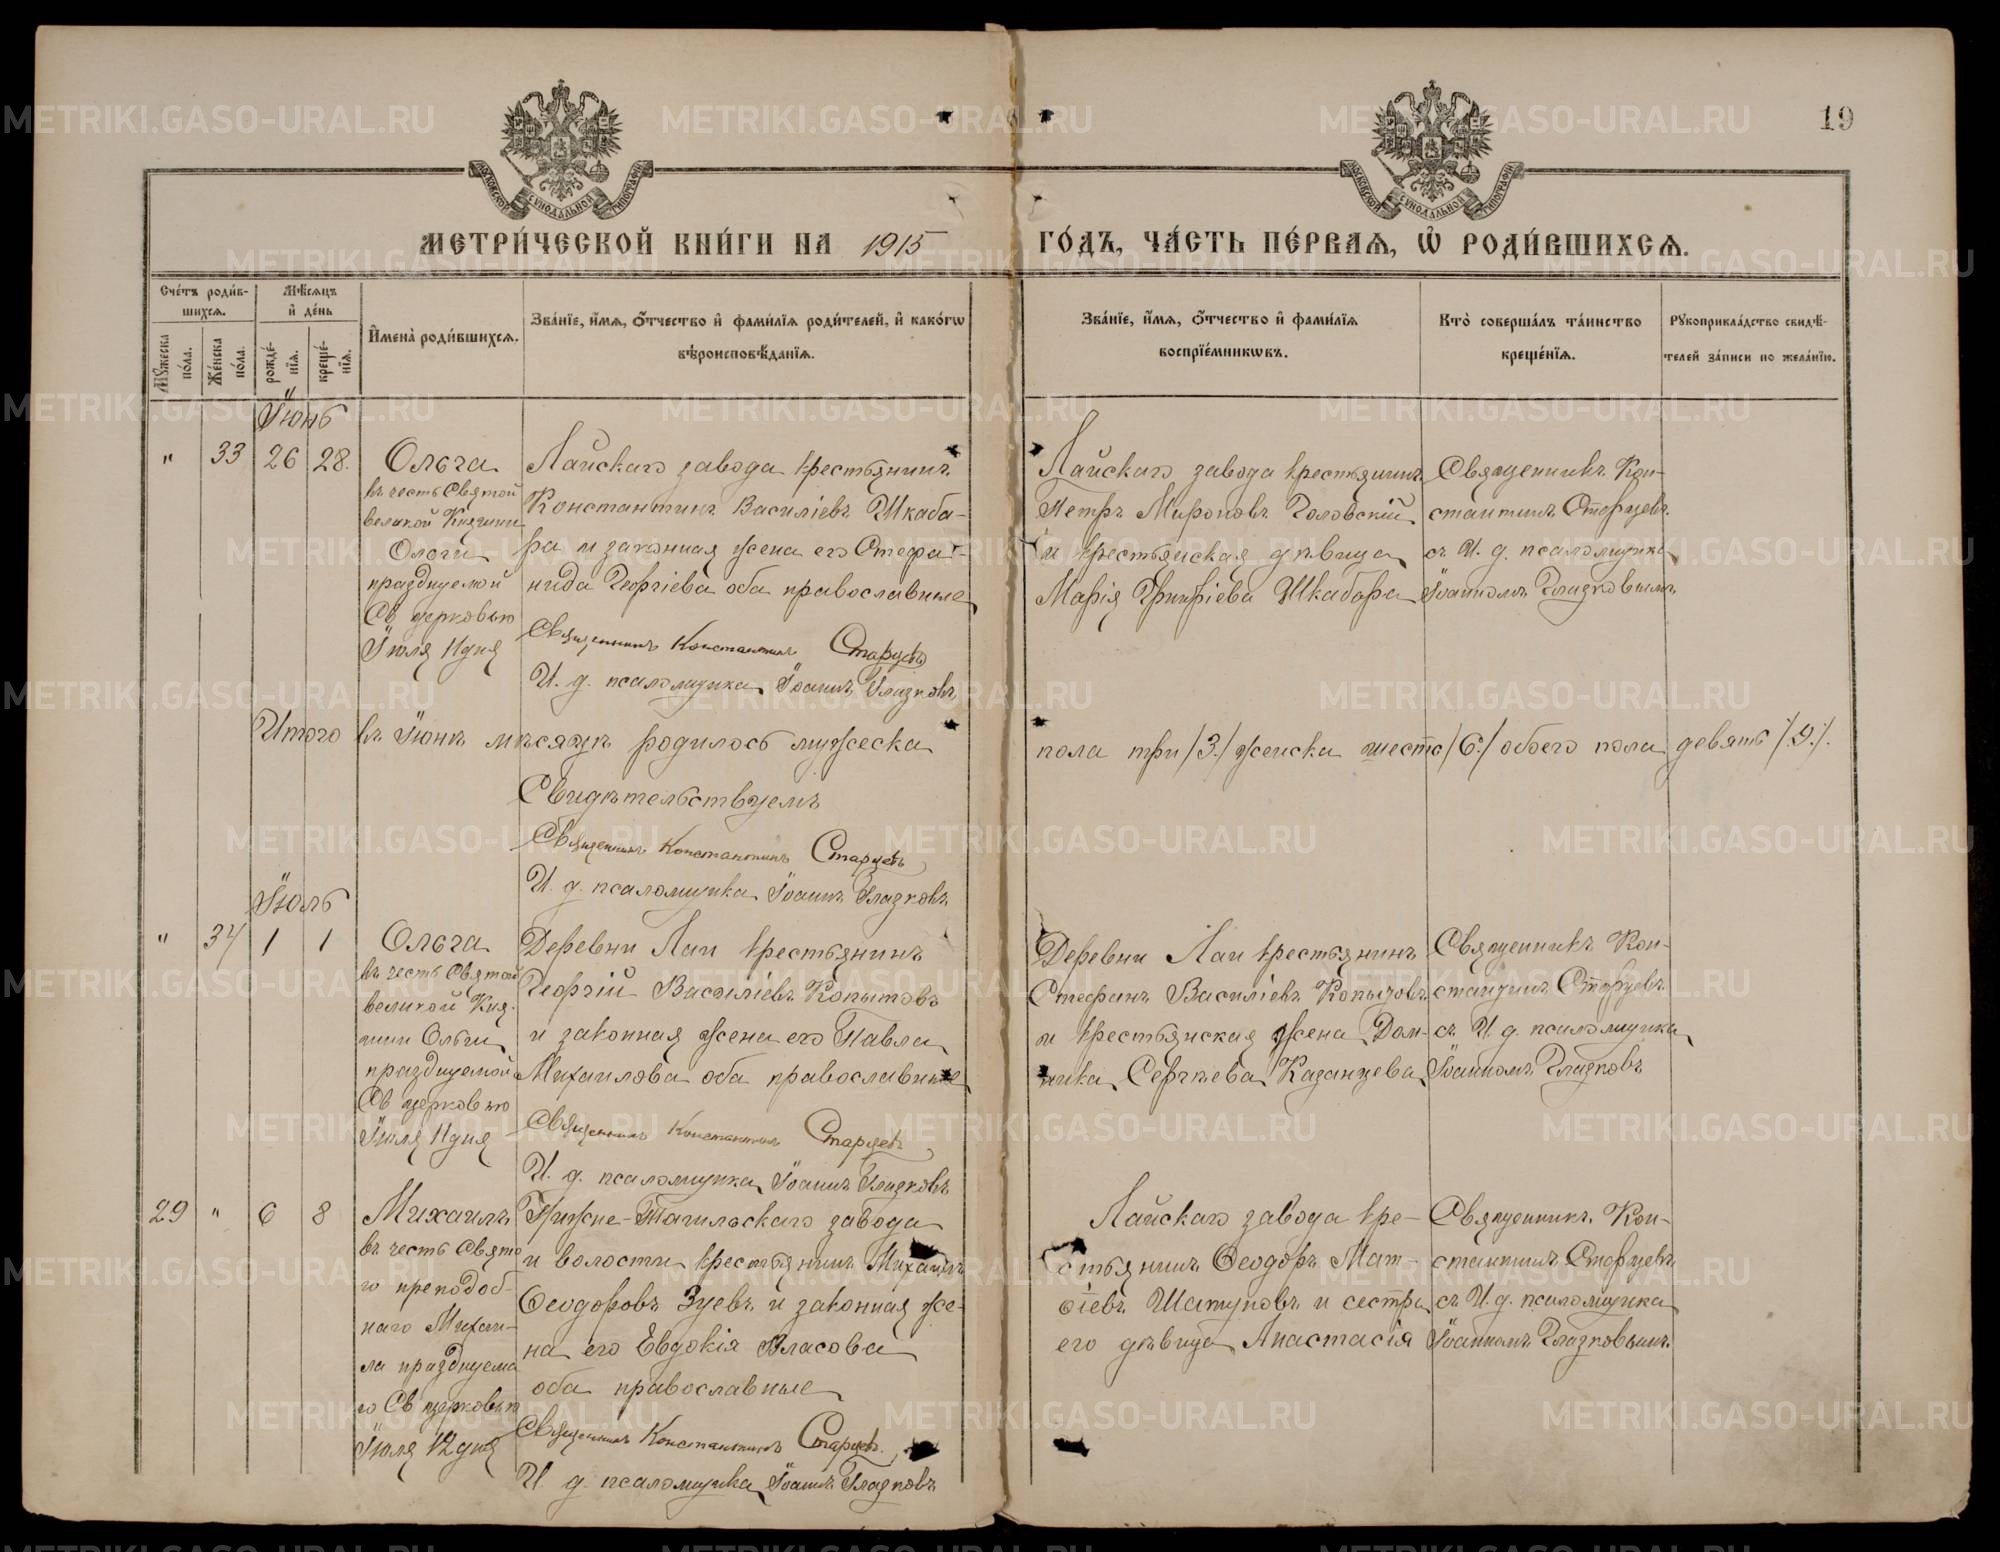 19
МОСКОВСКОЙ СУНОДАЛЬНОЙ ТИПОГРАФІИ
МОСКОВСКОЙ СУНОДАЛЬНОЙ ТИПОГРАФІИ
МЕТРИ́ЧЕСКОЙ КНИ́ГИ НА 1915 ГО́ДЪ, ЧА́СТЬ ПЕ́РВАѦ, Ѡ҆ РОДИ́ВШИХСѦ.
Сче́тъ роди́в-
шихсѧ.
Мѣ́сѧцъ
и҆ де́нь
Мꙋ́жеска по́ла.
Же́нска по́ла.
рожде́-
нїѧ.
креще́-
нїѧ.
И҆мена̀ роди́вшихсѧ.
Зва́нїе, и҆́мѧ, ѻ҆́тчество и҆ фами́лїѧ роди́телей, и҆ како́гѡ
вѣроисповѣ́данїѧ.
Зва́нїе, и҆́мѧ, ѻ҆́тчество и҆ фами́лїѧ
воспрїе́мникѡвъ.
Кто̀ соверша́лъ та́инство
креще́нїѧ.
Рꙋкоприкла́дство свидѣ́-
телей за́писи по жела́нїю.
Іюнь
" 33 26 28.
Ольга
въ честь Святой
великой Княгини
Ольги
празднуемой
Св церковью
Іюля 11 дня
Лайскаго завода крестьянинъ
Константинъ Василіевъ Шкаба-
ра и законная жена его Стефа-
нида Георгіева оба православные
Священникъ Константинъ Старцевъ
И. д. псаломщика Іоаннъ Глазковъ
Лайскаго завода крестьянинъ
Петръ Мироновъ Головскій
и крестьянская дѣвица
Марія Григоріева Шкабара
Священникъ Кон-
стантинъ Старцевъ
съ И. д. псаломщика
Іоанномъ Глазковымъ
Итого въ Іюнѣ мѣсяцѣ родилось мужеска пола три /3./ женска шесть /6/ обоего пола девять /.9./.
Свидѣтельствуемъ
Священникъ Константинъ Старцевъ
И. д. псаломщика Іоаннъ Глазковъ
Іюль
" 34 1 1
Ольга
въ честь Святой
великой Кня-
гини Ольги
празднуемой
Св церковью
Іюля 11 дня
Деревни Лаи крестьянинъ
Георгій Василіевъ Копытовъ
и законная жена его Павла
Михаилова оба православные
Священникъ Константинъ Старцевъ
И. д. псаломщика Іоаннъ Глазковъ
Деревни Лаи крестьянинъ
Стефанъ Василіевъ Копытовъ
и крестьянская жена Дом-
ника Сергѣева Казанцева
Священникъ Кон-
стантинъ Старцевъ
съ И. д. псаломщика
Іоанномъ Глазковъ
29 " 6 8
Михаилъ
въ честь Свято
го преподоб-
наго Михаи-
ла празднуема
го Св церковью
Іюля 12 дня
Нижне-Тагильскаго завода
и волости крестьянинъ Михаилъ
Ѳеодоровъ Зуевъ и законная же-
на его Евдокія Власова
оба православные
Священникъ Константинъ Старцевъ
И. д. псаломщика Іоаннъ Глазковъ
Лайскаго завода кре-
стьянинъ Ѳеодоръ Мат-
ѳіевъ Шатуновъ и сестра
его дѣвица Анастасія
Священникъ Кон-
стантинъ Старцевъ
съ И. д. псаломщика
Іоанномъ Глазковымъ
METRIKI.GASO-URAL.RU